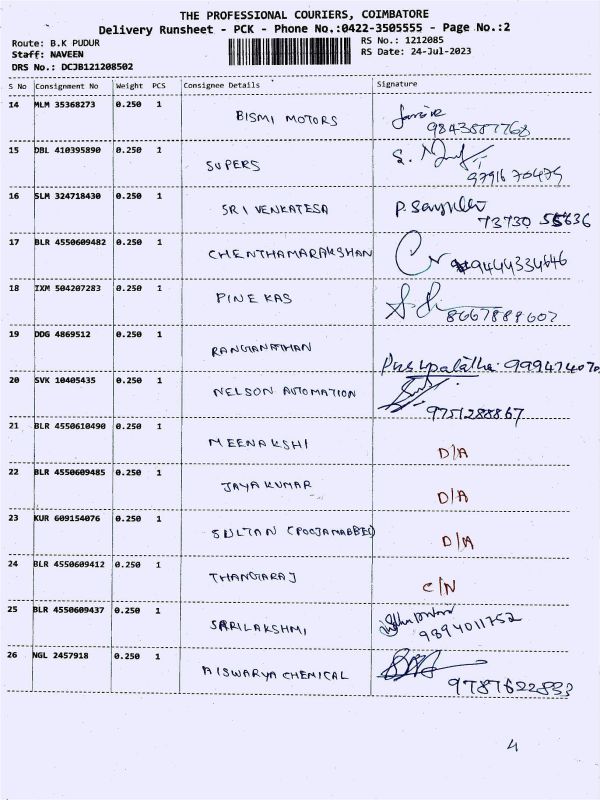 THE PROFESSIONAL COURIERS, COIMBATORE
Delivery Runsheet - PCK - Phone No.:0422-3505555 - Page No.:2
Route: B.K PUDUR RS No.: 1212085
Staff: NAVEEN RS Date: 24-Jul-2023
DRS No.: DCJB121208502
S No Consignment No Weight PCS Consignee Details Signature
14 MLM 35368273 0.250 1 BISMI MOTORS
15 DBL 410395890 0.250 1 SUPERS
16 SLM 324718430 0.250 1 SRI VENKATESA
73730 55636
17 BLR 4550609482 0.250 1 CHENTHAMARAKSHAN 9444334646
18 IXM 504207283 0.250 1 PINE KAS
8667889602
19 DDG 4869512 0.250 1 RANGANATHAN
Puspalatha
20 SVK 10405435 0.250 1 NELSON AUTOMATION
9751288867
21 BLR 4550610490 0.250 1 MEENAKSHI D/A
22 BLR 4550609485 0.250 1 JAYA KUMAR D/A
23 KUR 609154076 0.250 1 SULTAN (POOJAMABBEO) D/A
24 BLR 4550609412 0.250 1 THANGARAJ C/N
25 BLR 4550609437 0.250 1 SRRILAKSHMI
9894011752
26 NGL 2457918 0.250 1 AISWARYA CHEMICAL
9787622833
4